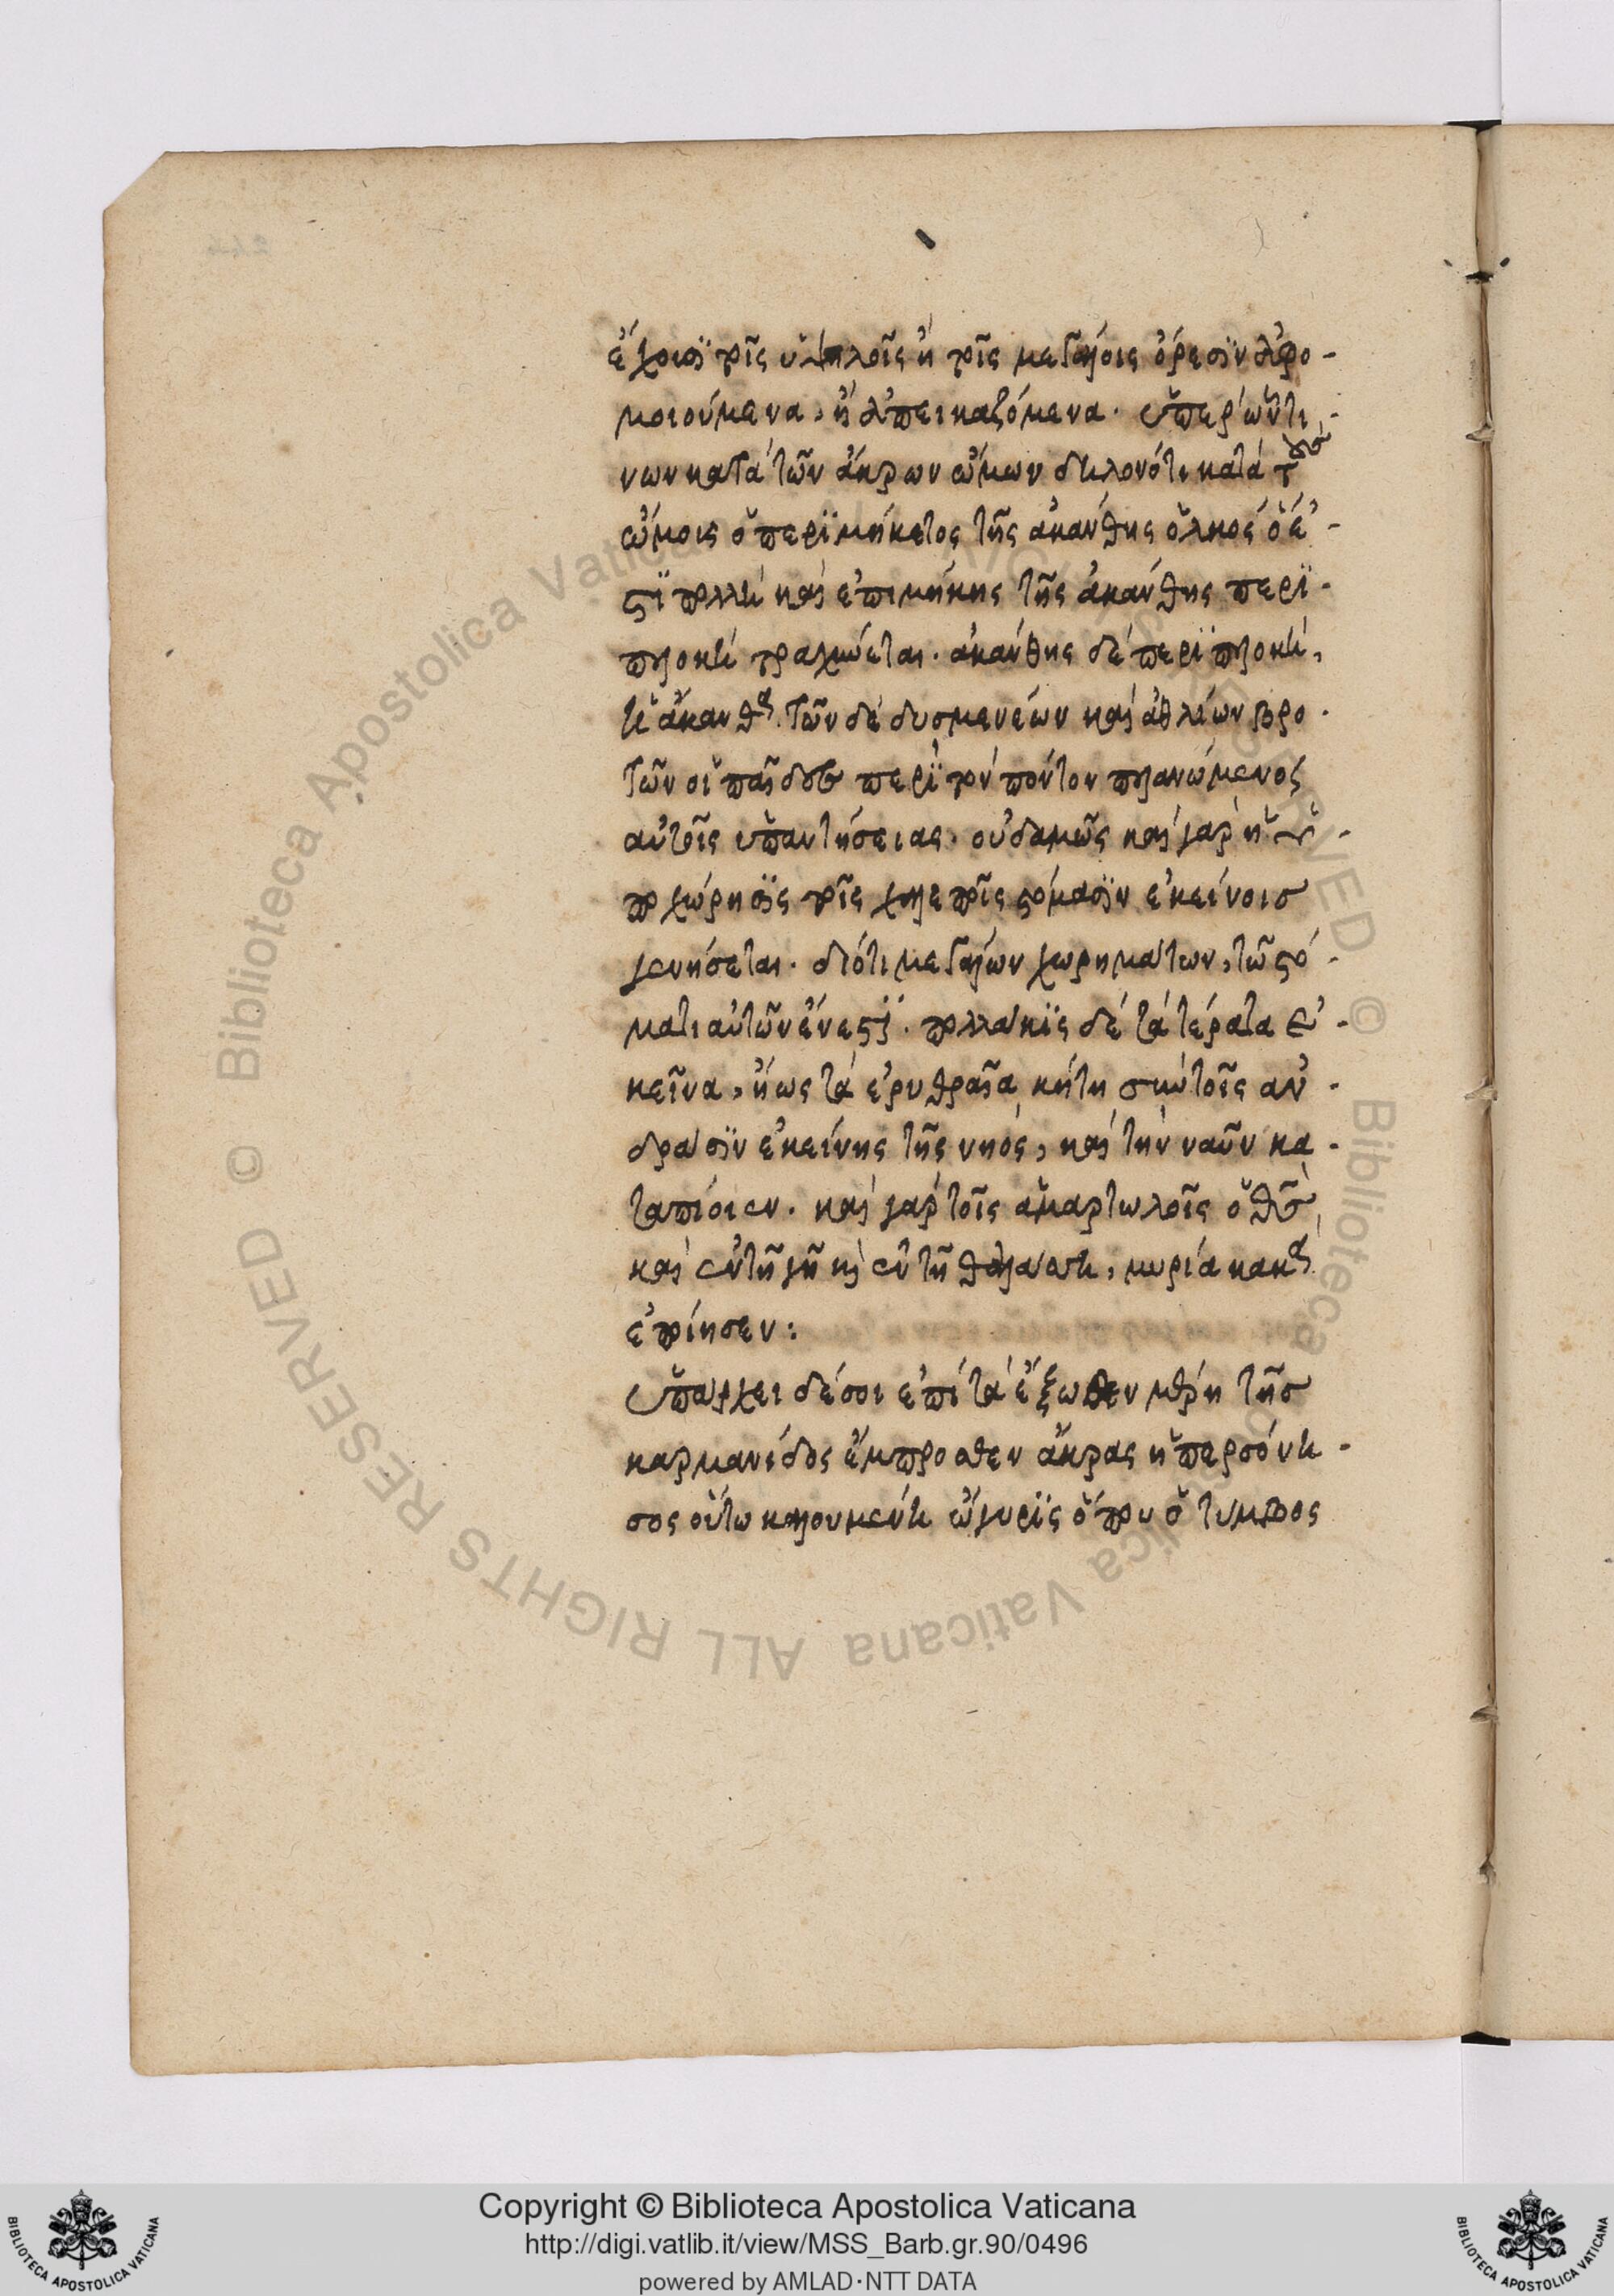 ἔχουσι τοῖς ὑψηλοῖς ἢ τοῖς μεγάλοις ὄρεσιν ἀφο-
μοιούμενα, ἢ ἀπεικαζόμενα. ὑπὲρ ὧντι-
νων κατὰ τῶν ἄκρων ὤμων δηλονότι κατὰ τοῖς
ὤμοις ὁ περιμήκετος τῆς ἀκάνθης ὁλκός ὅ ἐ-
στι πολλὴ καὶ ἐπιμήκης τῆς ἀκάνθης περι-
πλοκὴ τραχύεται. ἀκάνθης δὲ περιπλοκή,
ἡ ἄκανθα. τῶν δὲ δυσμενέων καὶ ἀθλίων βρο-
τῶν οἱ παῖδες περὶ τὸν πόντον πλανώμενος
αὐτοῖς ὑπαντήσειας. οὐδαμῶς καὶ γὰρ ἡ ὑ-
ποχώρησις τοῖς χαλεποῖς στόμασιν ἐκείνοισ
γενήσεται. διότι μεγάλων χωρημάτων, τῷ στό-
ματι αὐτῶν ἔνεστι. πολλάκις δὲ τὰ τέρατα ἐ-
κεῖνα, ἤως τὰ ἐρυθραῖα κήτη σὺν τοῖς ἀν-
δράσιν ἐκείνης τῆς νηός, καὶ τὴν ναῦν κα-
ταπίοιεν. καὶ γὰρ τοῖς ἁμαρτωλοῖς ὁ θς
καὶ ἐν τῇ γῇ κὶ ἐν τῇ θαλάσση, μυρία κακὰ
ἐποίησεν:
ὑπάρχει δέ σοι ἐπὶ τὰ ἔξωθεν μέρη τῆσ
καρμανίδος ἔμπροσθεν ἄκρας ἡ περσόνη-
σος οὕτω καλουμένη ὤγυρις ὅπου ὁ τύμβος
Copyright © Biblioteca Apostolica Vaticana
http://digi.vatlib.it/view/MSS_Barb.gr.90/0496
powered by AMLAD·NTT DATA